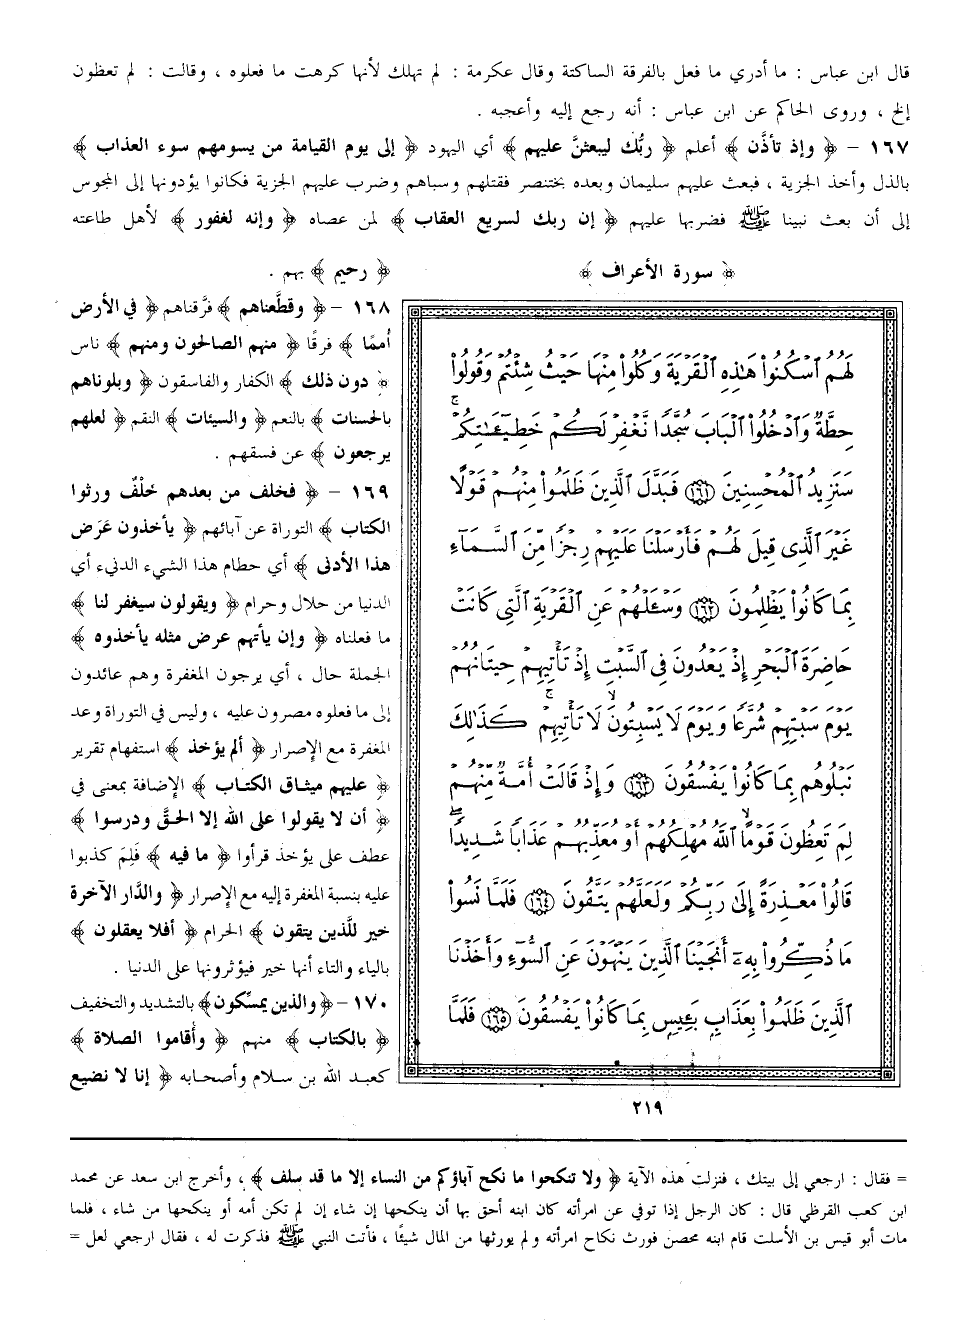 قال ابن عباس : ما أدري ما فعل بالفرقة الساكتة وقال عكرمة : لم تهلك لأنها كرهت ما فعلوه ، وقالت : لم تعظون
إلخ ، وروى الحاكم عن ابن عباس : أنه رجع إليه وأعجبه .
١٦٧ - ﴿ وإذ تأذَّن ﴾ أعلم ﴿ ربُّك ليبعثنَّ عليهم ﴾ أي اليهود ﴿ إلى يوم القيامة من يسومهم سوء العذاب ﴾
بالذل وأخذ الجزية ، فبعث عليهم سليمان وبعده بختنصر فقتلهم وسباهم وضرب عليهم الجزية فكانوا يؤدونها إلى المجوس
إلى أن بعث نبينا ﷺ فضربها عليهم ﴿ إن ربك لسريع العقاب ﴾ لمن عصاه ﴿ وإنه لغفور ﴾ لأهل طاعته
﴿ سورة الأعراف ﴾
لَهُمُ ٱسْكُنُوا۟ هَٰذِهِ ٱلْقَرْيَةَ وَكُلُوا۟ مِنْهَا حَيْثُ شِئْتُمْ وَقُولُوا۟
حِطَّةٌ وَٱدْخُلُوا۟ ٱلْبَابَ سُجَّدًا نَّغْفِرْ لَكُمْ خَطِيٓـَٰٔتِكُمْ ۚ
سَنَزِيدُ ٱلْمُحْسِنِينَ ١٦١ فَبَدَّلَ ٱلَّذِينَ ظَلَمُوا۟ مِنْهُمْ قَوْلًا
غَيْرَ ٱلَّذِى قِيلَ لَهُمْ فَأَرْسَلْنَا عَلَيْهِمْ رِجْزًا مِّنَ ٱلسَّمَآءِ
بِمَا كَانُوا۟ يَظْلِمُونَ ١٦٢ وَسْـَٔلْهُمْ عَنِ ٱلْقَرْيَةِ ٱلَّتِى كَانَتْ
حَاضِرَةَ ٱلْبَحْرِ إِذْ يَعْدُونَ فِى ٱلسَّبْتِ إِذْ تَأْتِيهِمْ حِيتَانُهُمْ
يَوْمَ سَبْتِهِمْ شُرَّعًا وَيَوْمَ لَا يَسْبِتُونَ ۙ لَا تَأْتِيهِمْ ۚ كَذَٰلِكَ
نَبْلُوهُم بِمَا كَانُوا۟ يَفْسُقُونَ ١٦٣ وَإِذْ قَالَتْ أُمَّةٌ مِّنْهُمْ
لِمَ تَعِظُونَ قَوْمًا ۙ ٱللَّهُ مُهْلِكُهُمْ أَوْ مُعَذِّبُهُمْ عَذَابًا شَدِيدًا ۖ
قَالُوا۟ مَعْذِرَةً إِلَىٰ رَبِّكُمْ وَلَعَلَّهُمْ يَتَّقُونَ ١٦٤ فَلَمَّا نَسُوا۟
مَا ذُكِّرُوا۟ بِهِۦٓ أَنجَيْنَا ٱلَّذِينَ يَنْهَوْنَ عَنِ ٱلسُّوٓءِ وَأَخَذْنَا
ٱلَّذِينَ ظَلَمُوا۟ بِعَذَابٍۭ بَـِٔيسٍۭ بِمَا كَانُوا۟ يَفْسُقُونَ ١٦٥ فَلَمَّا
﴿ رحيم ﴾ بهم .
١٦٨ - ﴿ وقطَّعناهم ﴾ فرَّقناهم ﴿ في الأرض
أُممًا ﴾ فرقًا ﴿ منهم الصالحون ومنهم ﴾ ناس
﴿ دون ذلك ﴾ الكفار والفاسقون ﴿ وبلوناهم
بالحسنات ﴾ بالنعم ﴿ والسيئات ﴾ النقم ﴿ لعلهم
يرجعون ﴾ عن فسقهم .
١٦٩ - ﴿ فخلف من بعدهم خلْفٌ ورثوا
الكتاب ﴾ التوراة عن آبائهم ﴿ يأخذون عَرَض
هذا الأدنى ﴾ أي حطام هذا الشيء الدنيء أي
الدنيا من حلال وحرام ﴿ ويقولون سيغفر لنا ﴾
ما فعلناه ﴿ وإن يأتهم عرض مثله يأخذوه ﴾
الجملة حال ، أي يرجون المغفرة وهم عائدون
إلى ما فعلوه مصرون عليه ، وليس في التوراة وعد
المغفرة مع الإصرار ﴿ ألم يؤخذ ﴾ استفهام تقرير
﴿ عليهم ميثاق الكتاب ﴾ الإضافة بمعنى في
﴿ أن لا يقولوا على الله إلا الحقَّ ودرسوا ﴾
عطف على يؤخذ قرأوا ﴿ ما فيه ﴾ فَلِمَ كذبوا
عليه بنسبة المغفرة إليه مع الإصرار ﴿ والدَّار الآخرة
خير للَّذين يتقون ﴾ الحرام ﴿ أفلا يعقلون ﴾
بالياء والتاء أنها خير فيؤثرونها على الدنيا .
١٧٠ - ﴿ والذين يمسِّكون ﴾ بالتشديد والتخفيف
﴿ بالكتاب ﴾ منهم ﴿ وأقاموا الصلاة ﴾
كعبد الله بن سلام وأصحابه ﴿ إنا لا نضيع
٢١٩
= فقال : ارجعي إلى بيتك ، فنزلت هذه الآية ﴿ ولا تنكحوا ما نكح آباؤكم من النساء إلا ما قد سلف ﴾ ، وأخرج ابن سعد عن محمد
ابن كعب القرظي قال : كان الرجل إذا توفي عن امرأته كان ابنه أحق بها أن ينكحها إن شاء إن لم تكن أمه أو ينكحها من شاء ، فلما
مات أبو قيس بن الأسلت قام ابنه محصن فورث نكاح امرأته ولم يورثها من المال شيئًا ، فأتت النبي ﷺ فذكرت له ، فقال ارجعي لعل =